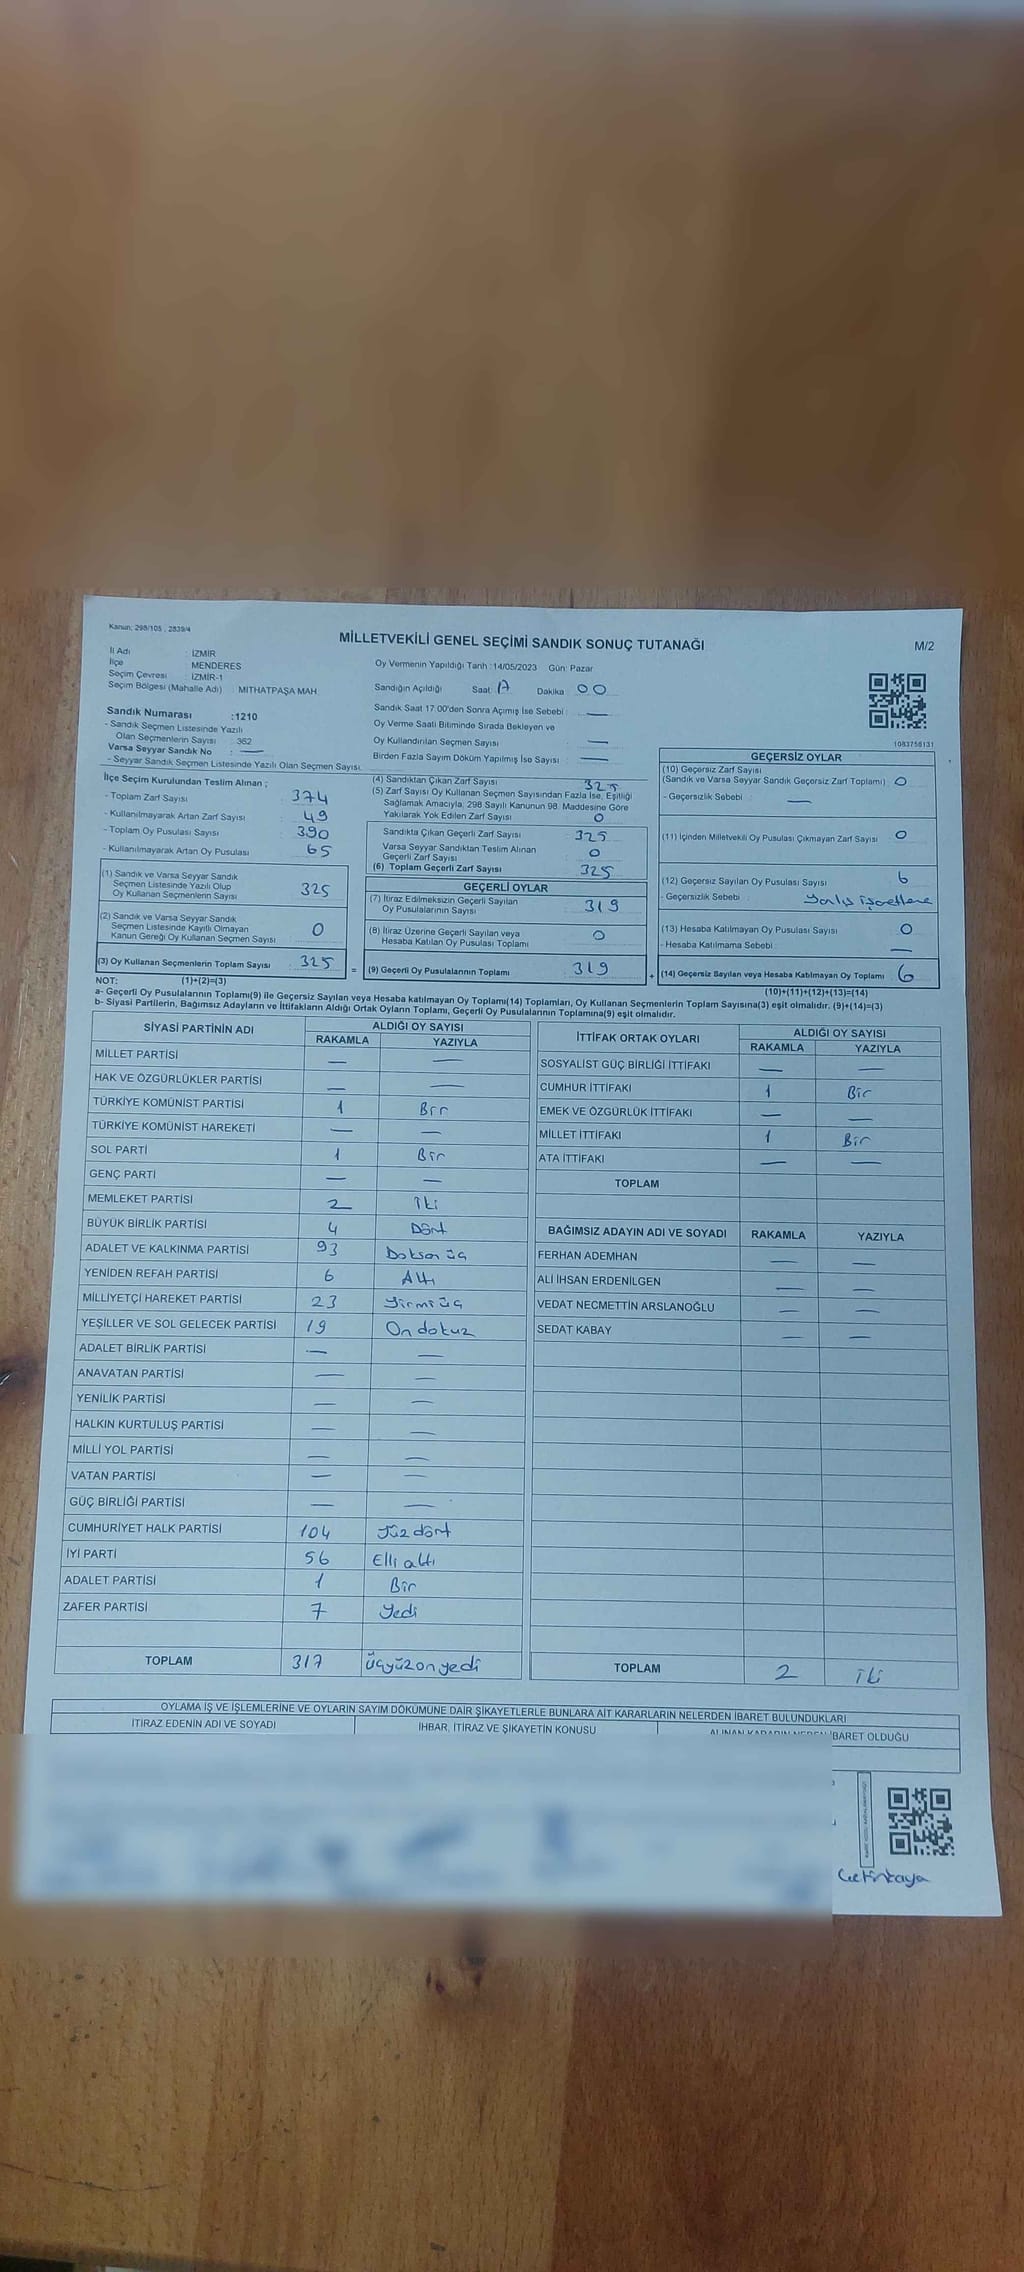 Kanun: 298/105 , 2839/4
MİLLETVEKİLİ GENEL SEÇİMİ SANDIK SONUÇ TUTANAĞI
M/2
İl Adı : İZMİR
İlçe : MENDERES
Seçim Çevresi : İZMİR-1
Seçim Bölgesi (Mahalle Adı) : MİTHATPAŞA MAH
Oy Vermenin Yapıldığı Tarih :14/05/2023 Gün: Pazar
Sandığın Açıldığı Saat 17 Dakika 00
Sandık Saat 17:00'den Sonra Açımış İse Sebebi : —
Oy Verme Saati Bitiminde Sırada Bekleyen ve
Oy Kullandırılan Seçmen Sayısı : —
Birden Fazla Sayım Döküm Yapılmış İse Sayısı : —
1083756131
Sandık Numarası :1210
- Sandık Seçmen Listesinde Yazılı
Olan Seçmenlerin Sayısı : 362
Varsa Seyyar Sandık No : —
- Seyyar Sandık Seçmen Listesinde Yazılı Olan Seçmen Sayısı:
İlçe Seçim Kurulundan Teslim Alınan ;
- Toplam Zarf Sayısı : 374
- Kullanılmayarak Artan Zarf Sayısı : 49
- Toplam Oy Pusulası Sayısı : 390
- Kullanılmayarak Artan Oy Pusulası : 65
(1) Sandık ve Varsa Seyyar Sandık
Seçmen Listesinde Yazılı Olup
Oy Kullanan Seçmenlerin Sayısı : 325
(2) Sandık ve Varsa Seyyar Sandık
Seçmen Listesinde Kayıtlı Olmayan
Kanun Gereği Oy Kullanan Seçmen Sayısı : 0
(3) Oy Kullanan Seçmenlerin Toplam Sayısı : 325
(4) Sandıktan Çıkan Zarf Sayısı : 325
(5) Zarf Sayısı Oy Kullanan Seçmen Sayısından Fazla İse, Eşitliği
Sağlamak Amacıyla, 298 Sayılı Kanunun 98. Maddesine Göre
Yakılarak Yok Edilen Zarf Sayısı : 0
Sandıkta Çıkan Geçerli Zarf Sayısı : 325
Varsa Seyyar Sandıktan Teslim Alınan
Geçerli Zarf Sayısı : 0
(6) Toplam Geçerli Zarf Sayısı : 325
GEÇERLİ OYLAR
(7) İtiraz Edilmeksizin Geçerli Sayılan
Oy Pusulalarının Sayısı : 319
(8) İtiraz Üzerine Geçerli Sayılan veya
Hesaba Katılan Oy Pusulası Toplamı : 0
= (9) Geçerli Oy Pusulalarının Toplamı : 319
GEÇERSİZ OYLAR
(10) Geçersiz Zarf Sayısı
(Sandık ve Varsa Seyyar Sandık Geçersiz Zarf Toplamı) : 0
- Geçersizlik Sebebi : —
(11) İçinden Milletvekili Oy Pusulası Çıkmayan Zarf Sayısı : 0
(12) Geçersiz Sayılan Oy Pusulası Sayısı : 6
- Geçersizlik Sebebi : Yanlış işaretleme
(13) Hesaba Katılmayan Oy Pusulası Sayısı : 0
- Hesaba Katılmama Sebebi : —
+ (14) Geçersiz Sayılan veya Hesaba Katılmayan Oy Toplamı : 6
NOT: (1)+(2)=(3)
(10)+(11)+(12)+(13)=(14)
a- Geçerli Oy Pusulalarının Toplamı(9) ile Geçersiz Sayılan veya Hesaba katılmayan Oy Toplamı(14) Toplamları, Oy Kullanan Seçmenlerin Toplam Sayısına(3) eşit olmalıdır. (9)+(14)=(3)
b- Siyasi Partilerin, Bağımsız Adayların ve İttifakların Aldığı Ortak Oyların Toplamı, Geçerli Oy Pusulalarının Toplamına(9) eşit olmalıdır.
SİYASİ PARTİNİN ADI ALDIĞI OY SAYISI
RAKAMLA YAZIYLA
MİLLET PARTİSİ — —
HAK VE ÖZGÜRLÜKLER PARTİSİ — —
TÜRKİYE KOMÜNİST PARTİSİ 1 Bir
TÜRKİYE KOMÜNİST HAREKETİ — —
SOL PARTİ 1 Bir
GENÇ PARTİ — —
MEMLEKET PARTİSİ 2 İki
BÜYÜK BİRLİK PARTİSİ 4 Dört
ADALET VE KALKINMA PARTİSİ 93 Doksan üç
YENİDEN REFAH PARTİSİ 6 Altı
MİLLİYETÇİ HAREKET PARTİSİ 23 Yirmi üç
YEŞİLLER VE SOL GELECEK PARTİSİ 19 On dokuz
ADALET BİRLİK PARTİSİ — —
ANAVATAN PARTİSİ — —
YENİLİK PARTİSİ — —
HALKIN KURTULUŞ PARTİSİ — —
MİLLİ YOL PARTİSİ — —
VATAN PARTİSİ — —
GÜÇ BİRLİĞİ PARTİSİ — —
CUMHURİYET HALK PARTİSİ 104 Yüz dört
İYİ PARTİ 56 Elli altı
ADALET PARTİSİ 1 Bir
ZAFER PARTİSİ 7 Yedi
TOPLAM 317 Üçyüzonyedi
İTTİFAK ORTAK OYLARI ALDIĞI OY SAYISI
RAKAMLA YAZIYLA
SOSYALİST GÜÇ BİRLİĞİ İTTİFAKI — —
CUMHUR İTTİFAKI 1 Bir
EMEK VE ÖZGÜRLÜK İTTİFAKI — —
MİLLET İTTİFAKI 1 Bir
ATA İTTİFAKI — —
TOPLAM
BAĞIMSIZ ADAYIN ADI VE SOYADI RAKAMLA YAZIYLA
FERHAN ADEMHAN — —
ALİ İHSAN ERDENİLGEN — —
VEDAT NECMETTİN ARSLANOĞLU — —
SEDAT KABAY — —
TOPLAM 2 İki
OYLAMA İŞ VE İŞLEMLERİNE VE OYLARIN SAYIM DÖKÜMÜNE DAİR ŞİKAYETLERLE BUNLARA AİT KARARLARIN NELERDEN İBARET BULUNDUKLARI
İTİRAZ EDENİN ADI VE SOYADI İHBAR, İTİRAZ VE ŞİKAYETİN KONUSU ALINAN KARARIN NEREN İBARET OLDUĞU
Çetinkaya